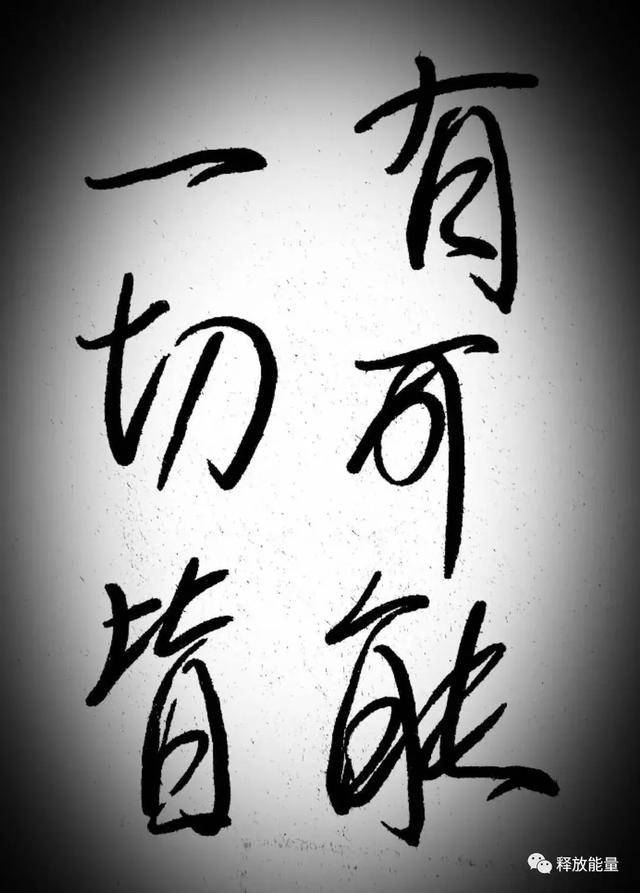 一切皆
有可能
释放能量